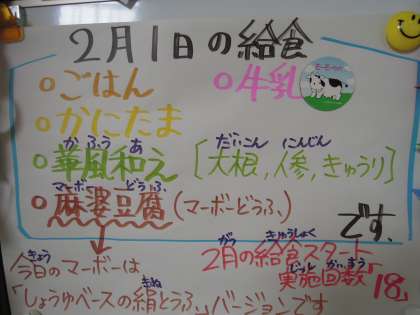 2月1日の給食
ごはん
牛乳
かにたま
かふうあ
華風和え
だいこん にんじん
[大根,人参,きゅうり]
マーボー どうふ
麻婆豆腐(マーボーどうふ)
です、
きょう
今日のマーボーは
きぬ
「しょうゆベースの絹とうふ」バージョンです
がつ きゅうしょく
2月の給食スタート
じっし かいすう
実施回数「18」